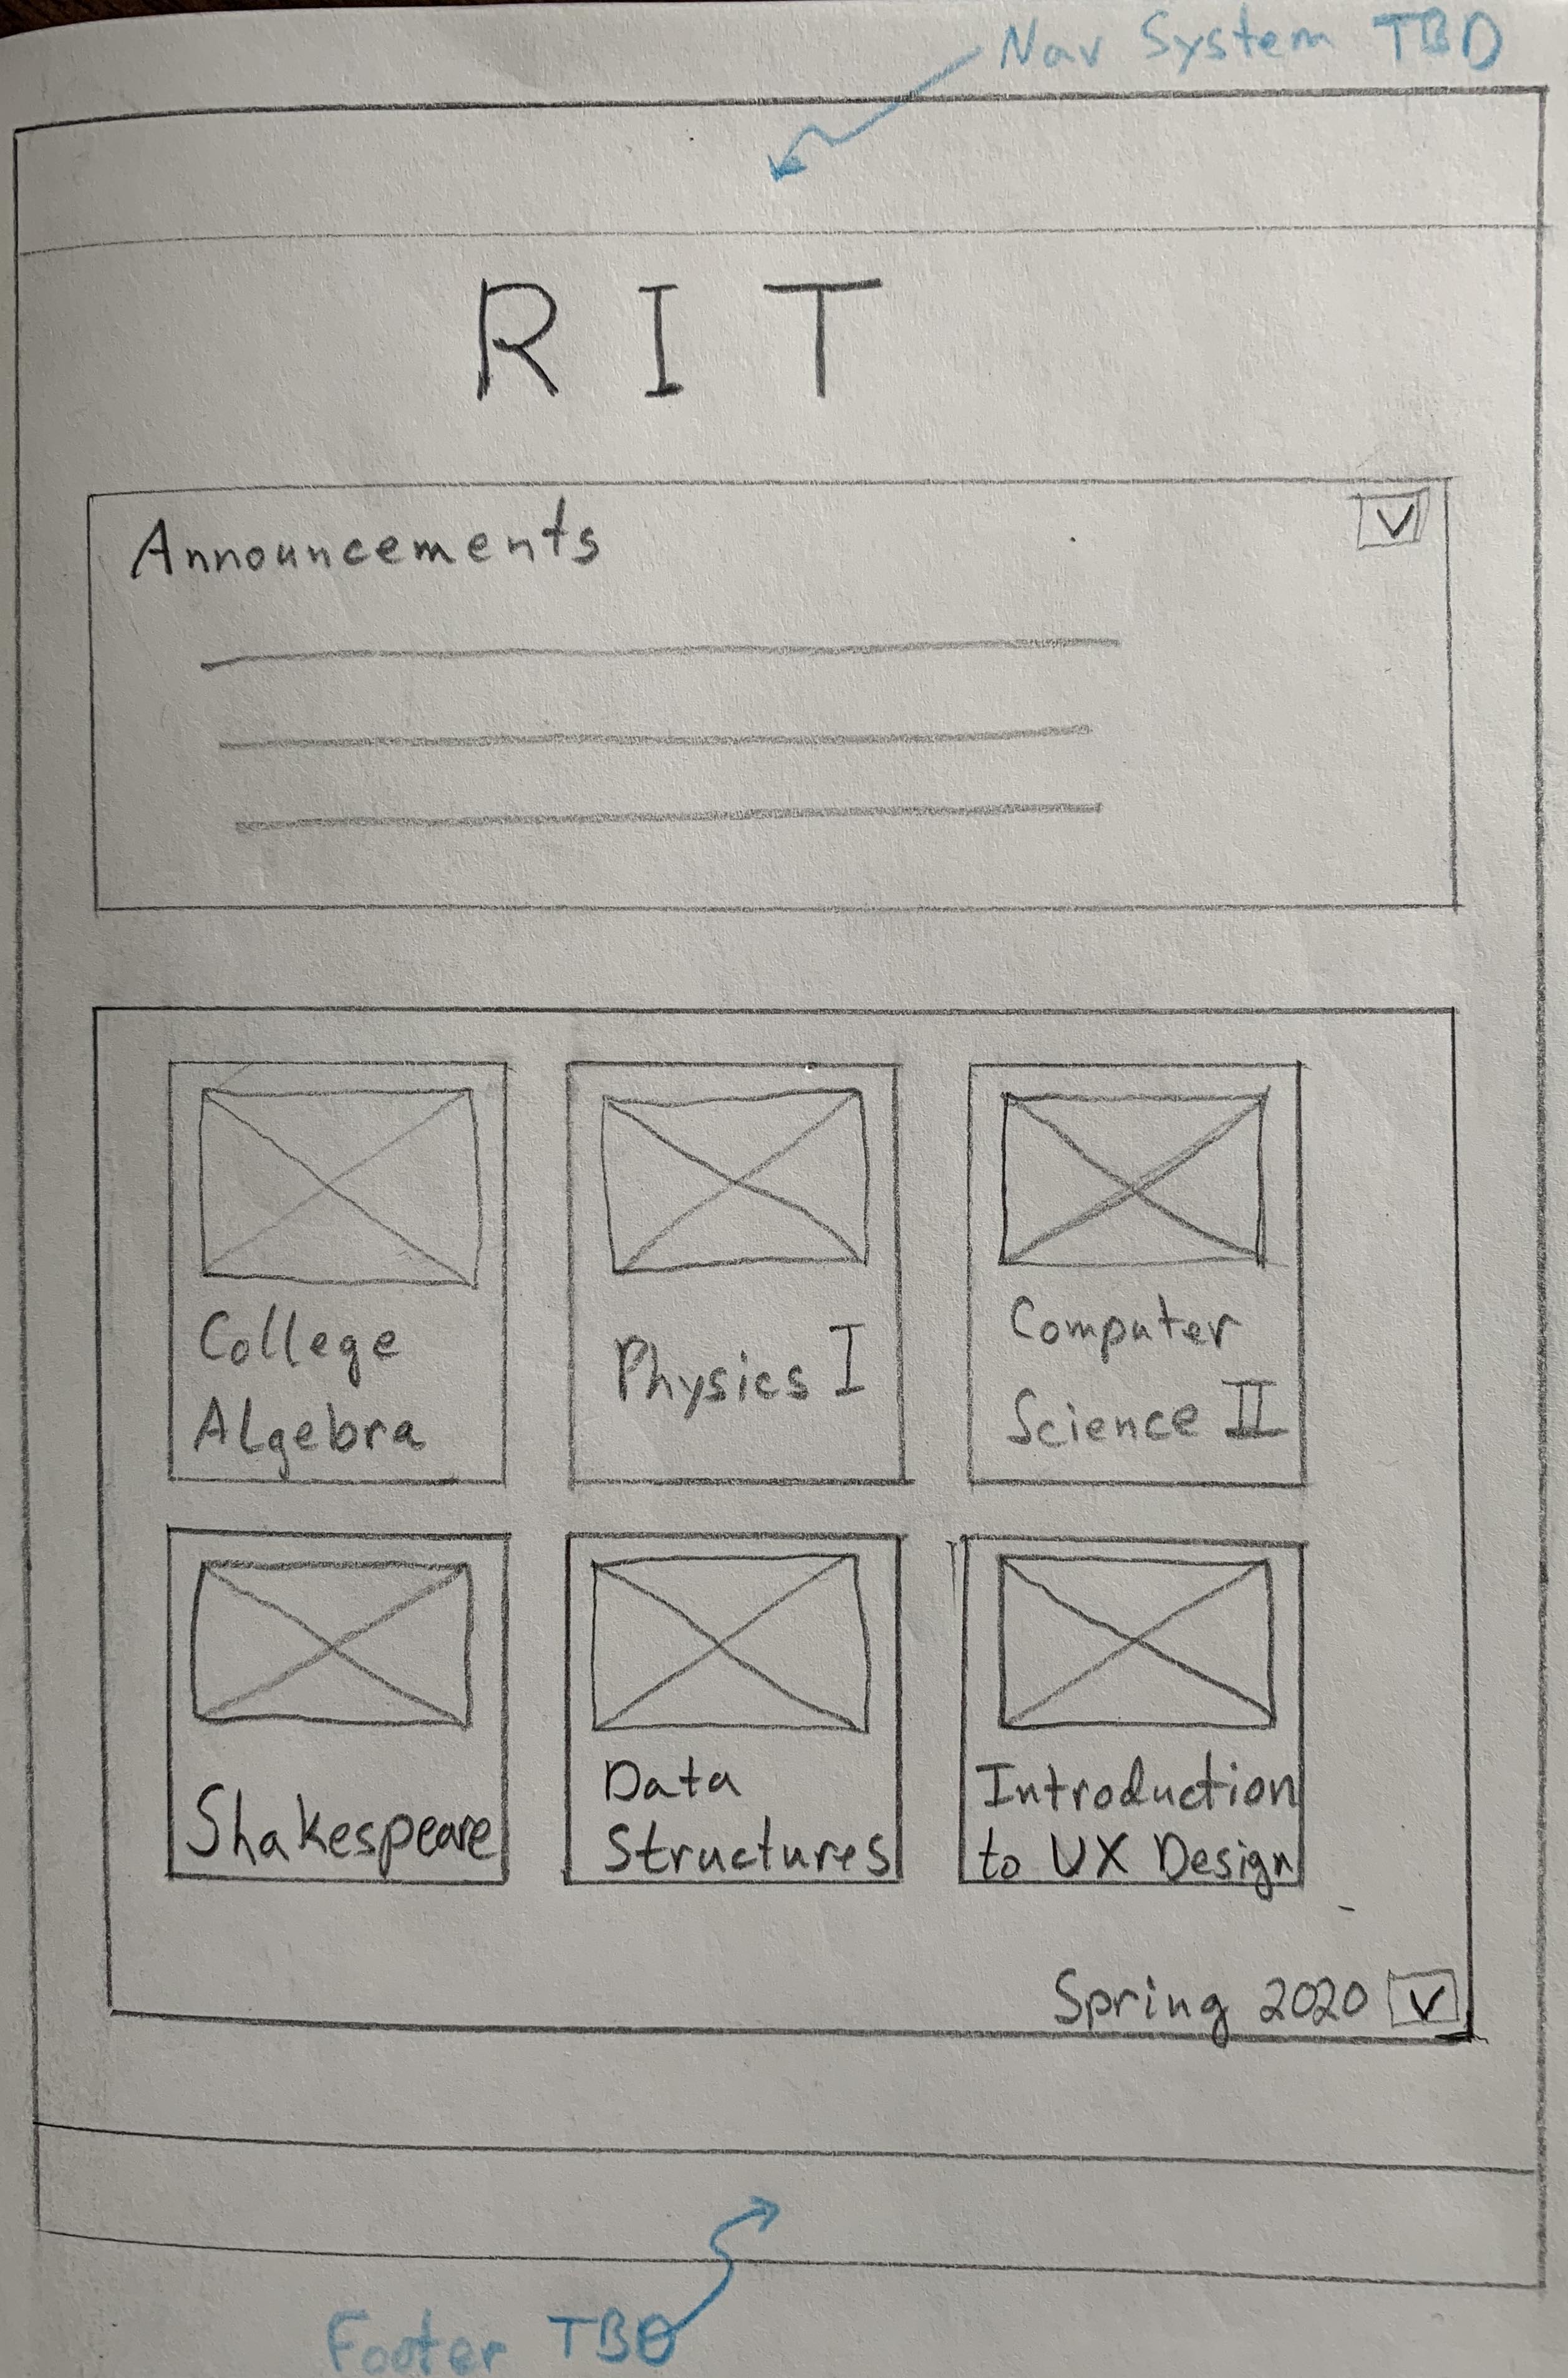 Nav System TBD
R I T
Announcements
College
Algebra
Physics I
Computer
Science II
Shakespeare
Data
Structures
Introduction
to UX Design
Spring 2020
Footer TBD